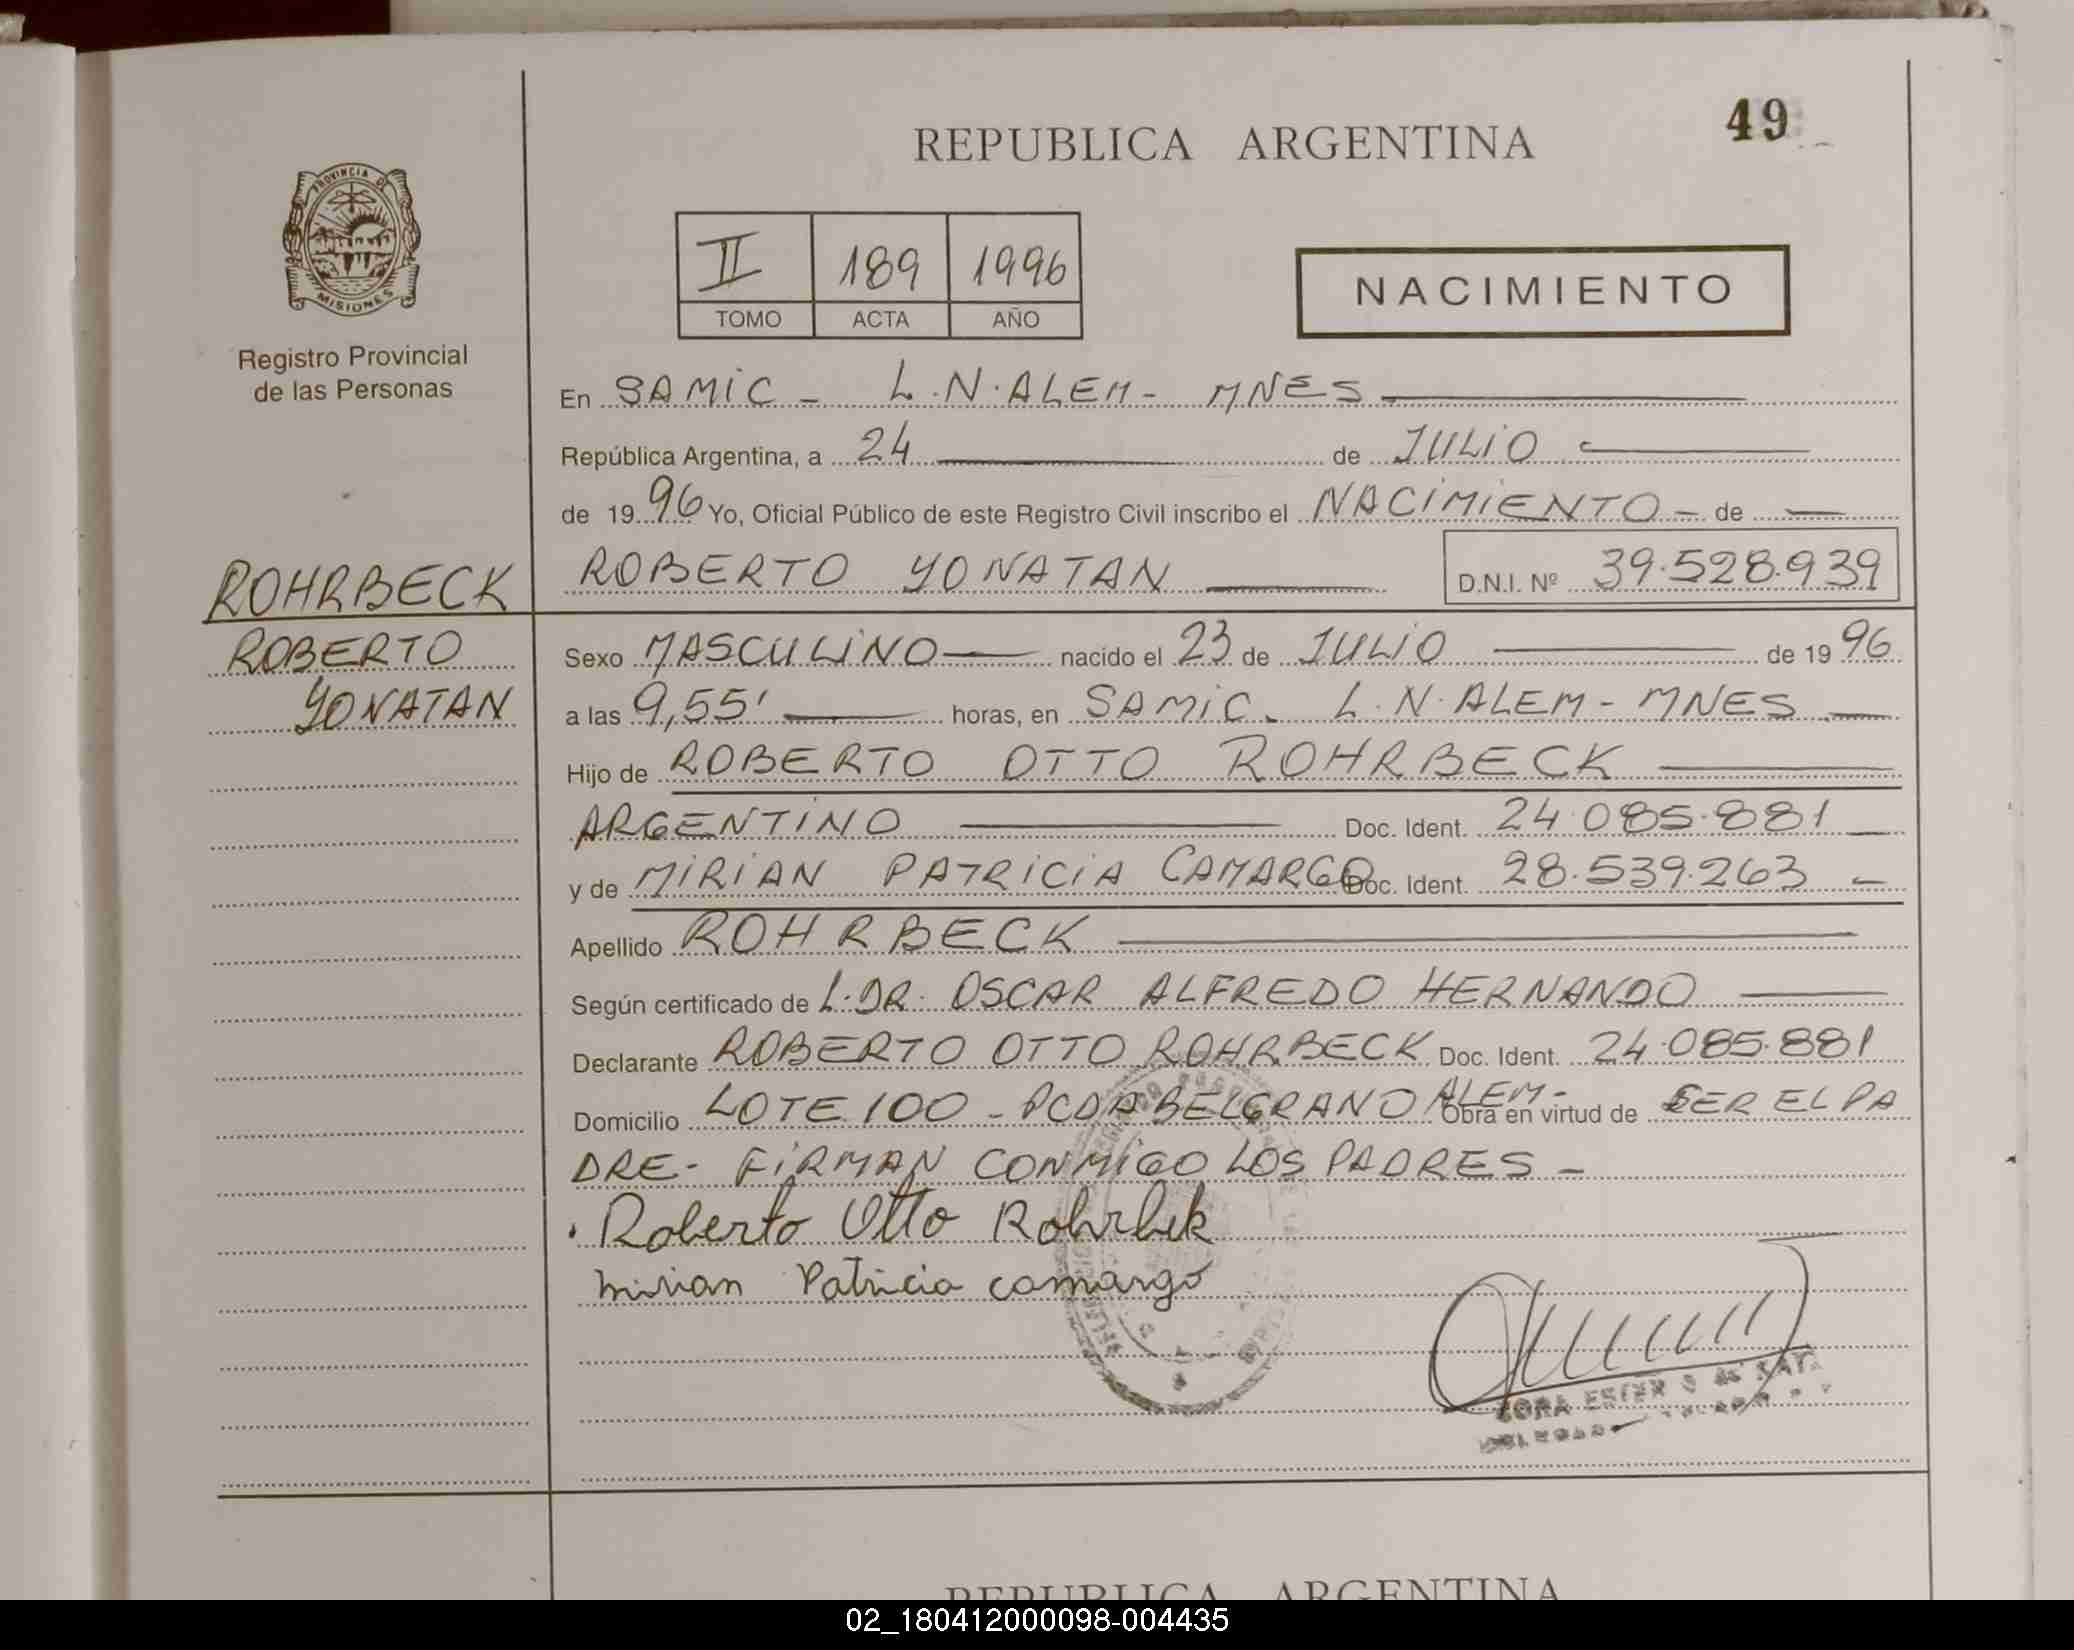 49
REPUBLICA ARGENTINA
PROVINCIA DE
MISIONES
II 189 1996
TOMO ACTA AÑO
NACIMIENTO
Registro Provincial
de las Personas
En SAMIC - L.N.ALEM - MNES
República Argentina, a 24 de JULIO
de 1996 Yo, Oficial Público de este Registro Civil inscribo el NACIMIENTO - de
ROBERTO YONATAN D.N.I. Nº 39.528.939
ROHRBECK
ROBERTO
YONATAN
Sexo MASCULINO nacido el 23 de JULIO de 1996
a las 9,55' horas, en SAMIC. L.N.ALEM - MNES
Hijo de ROBERTO OTTO ROHRBECK
ARGENTINO Doc. Ident. 24.085.881
y de MIRIAN PATRICIA CAMARGO Doc. Ident. 28.539.263
Apellido ROHRBECK
Según certificado de L.DR. OSCAR ALFREDO HERNANDO
Declarante ROBERTO OTTO ROHRBECK Doc. Ident. 24.085.881
Domicilio LOTE 100 - PCDA BELGRANO ALEM - Obra en virtud de SER EL PA
DRE - FIRMAN CONMIGO LOS PADRES -
Roberto Otto Rohrbek
Mirian Patricia Camargo
REPUBLICA ARGENTINA
02_180412000098-004435